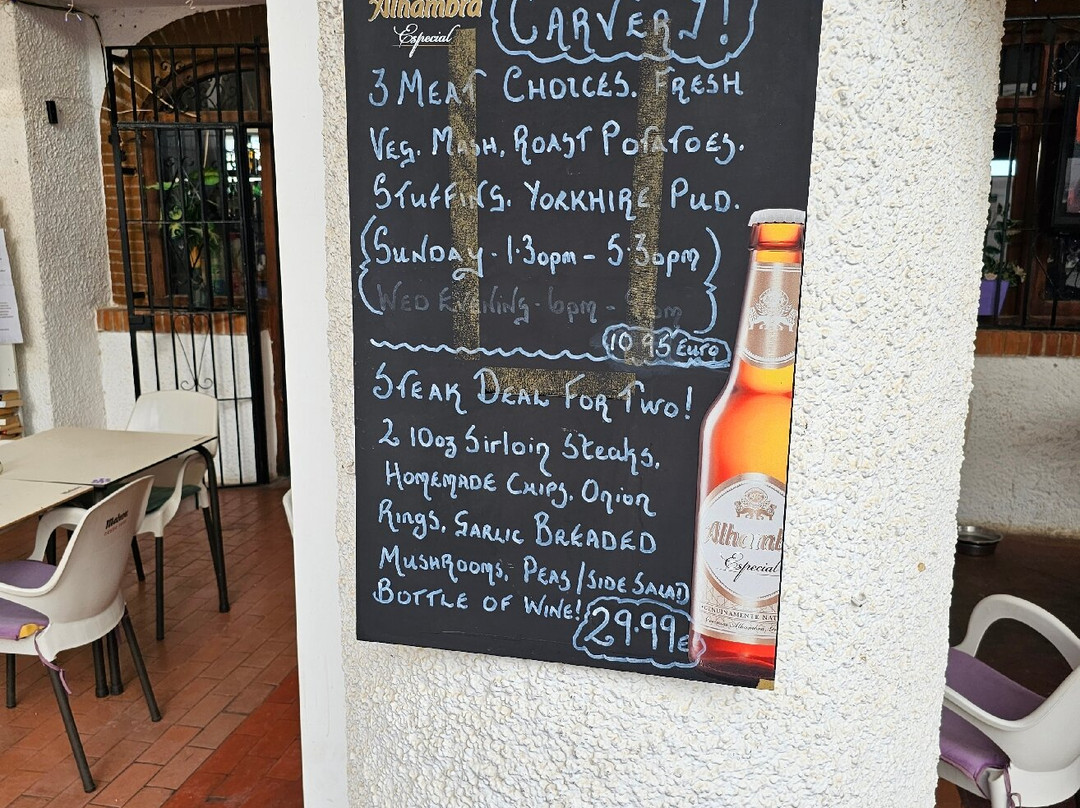 Alhambra
Especial
CARVERY!
3 MEAT CHOICES. FRESH
VEG. MASH, ROAST POTATOES.
STUFFING. YORKHIRE PUD.
SUNDAY - 1.30pm - 5.30pm
WED EVENING - 6pm - pm
10.95 Euro
STEAK DEAL FOR TWO!
2 10oz Sirloin Steaks,
HOMEMADE CHIPS, Onion
Rings, GARLIC BREADED
MUSHROOMS, PEAS/SIDE SALAD
BOTTLE OF WINE!
29.99€
Alhamb
Especial
GENUINAMENTE NAT
Mahou